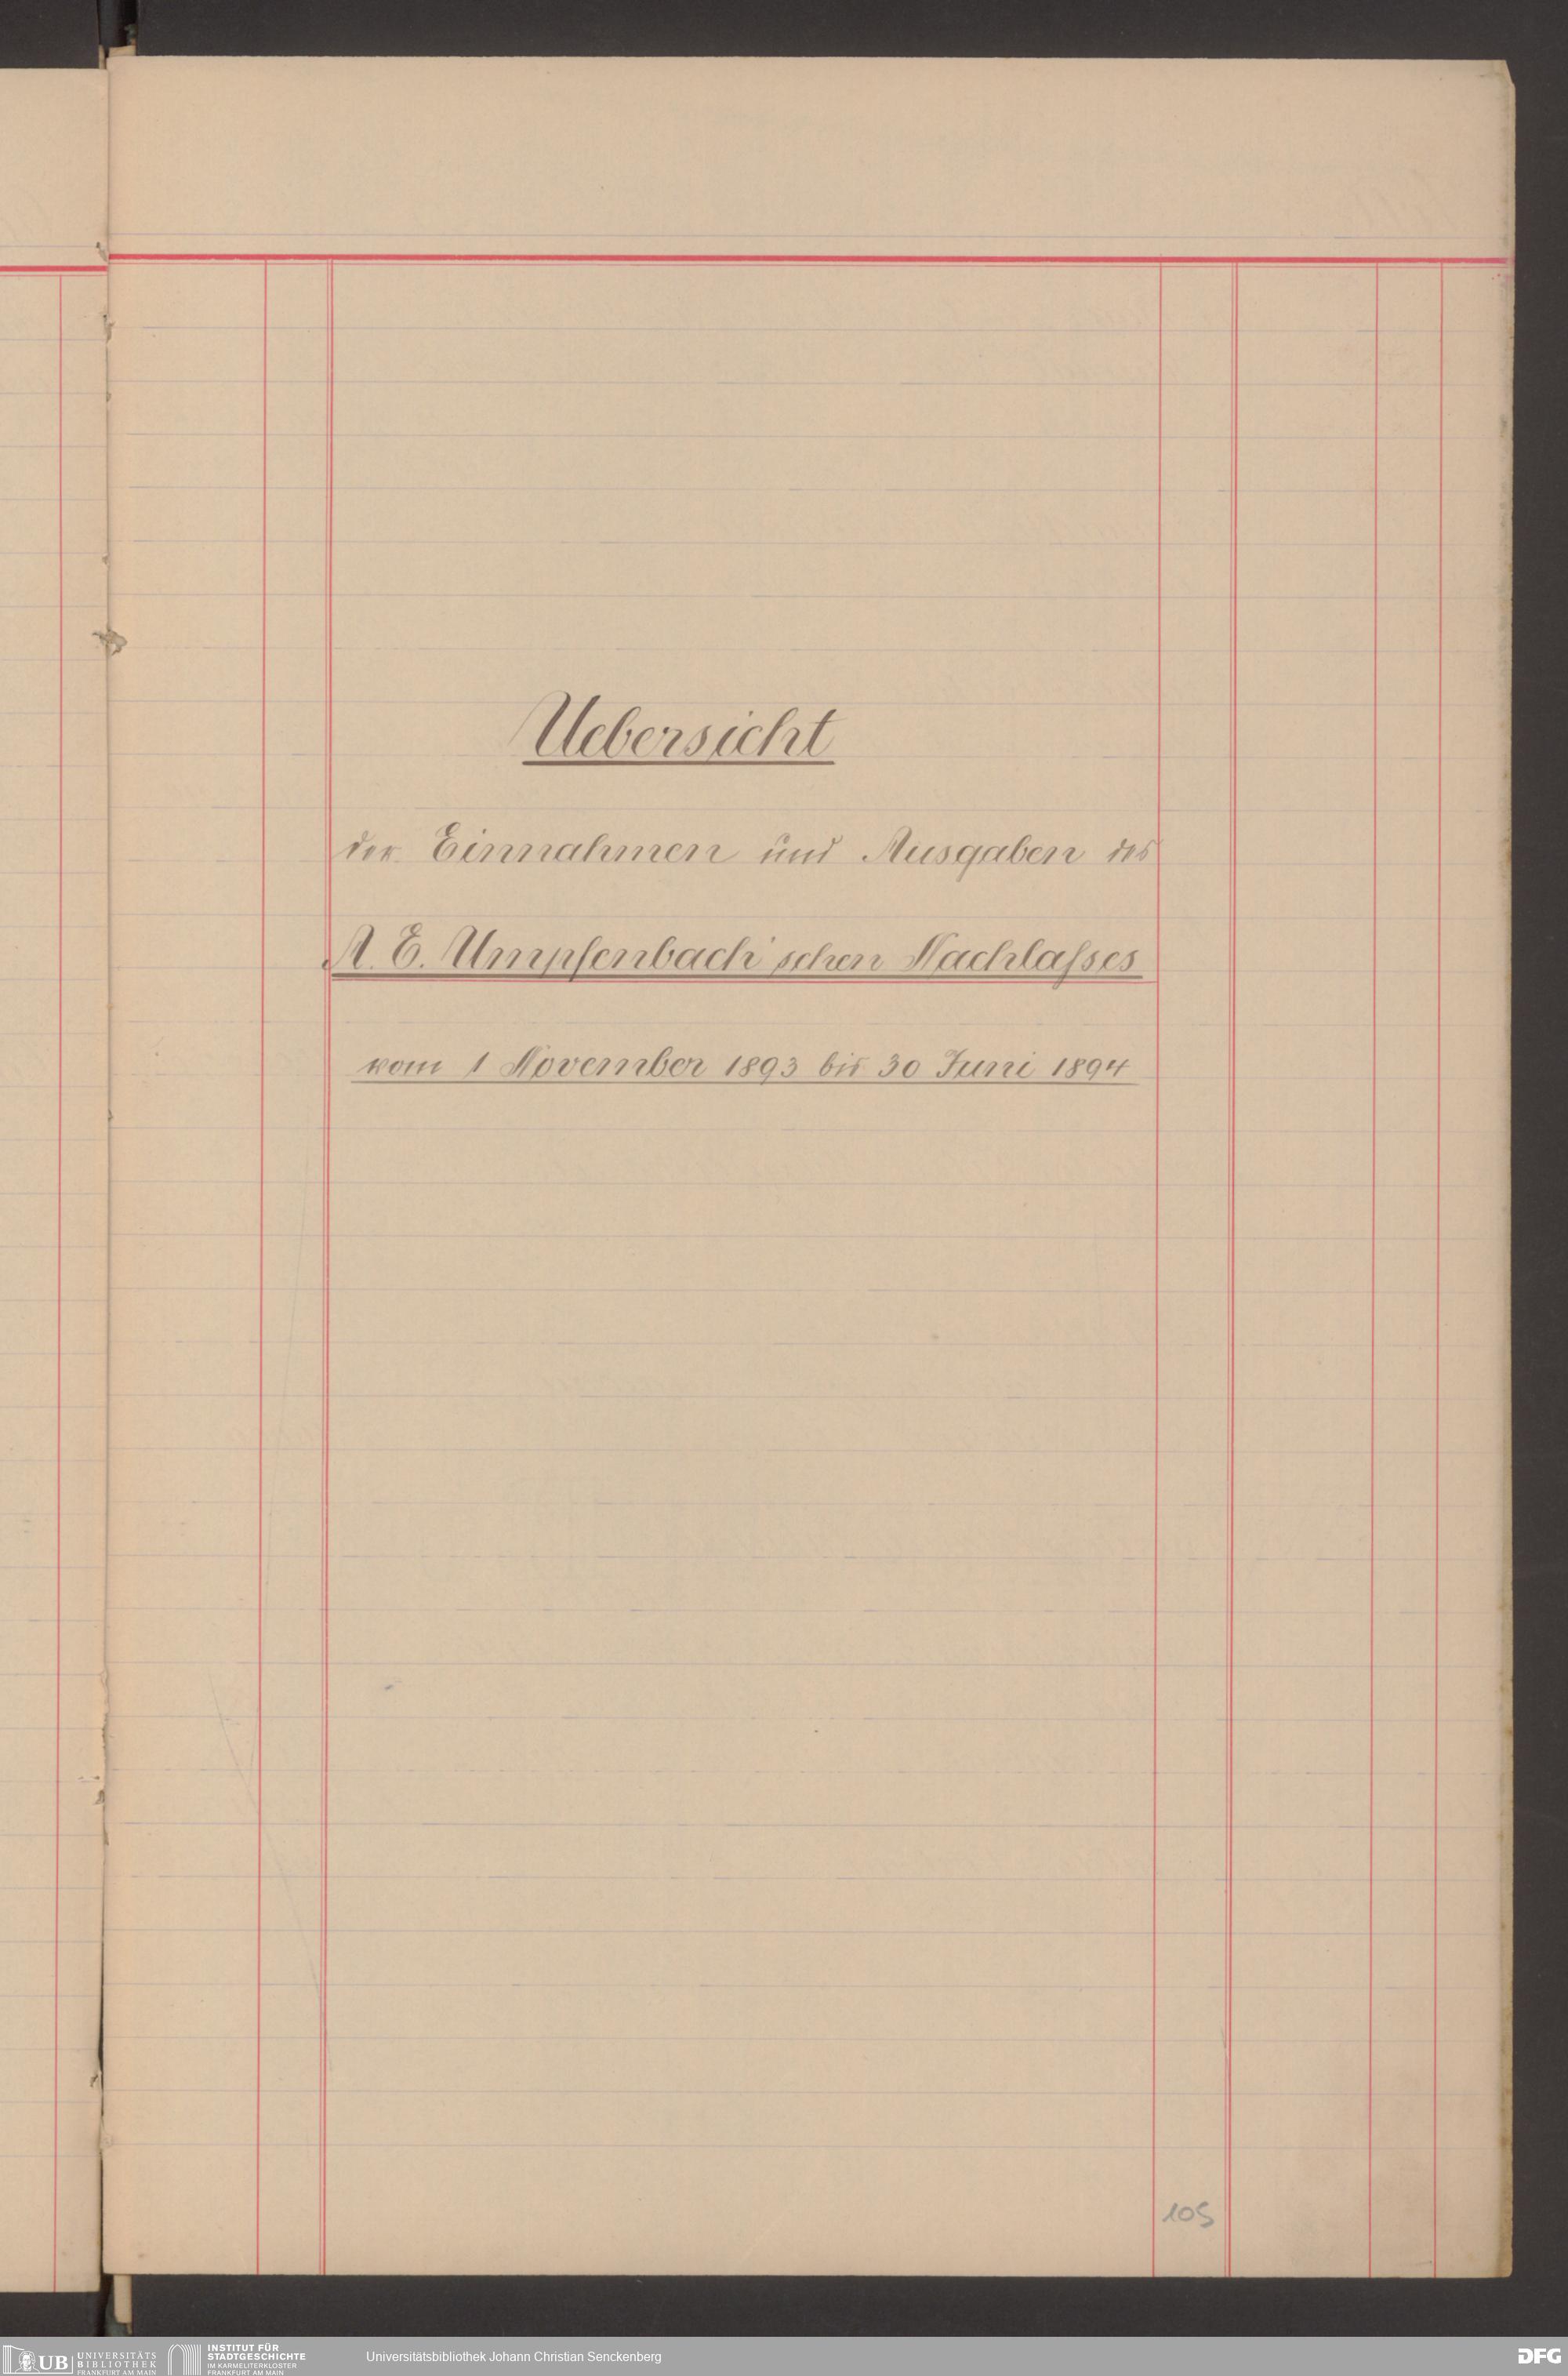 Uebersicht
der Einnahmen und Ausgaben des
A. E. Umpfenbach'schen Nachlaſses
vom 1 November 1893 bis 30 Juni 1894
105
UB UNIVERSITÄTS
BIBLIOTHEK
FRANKFURT AM MAIN
INSTITUT FÜR
STADTGESCHICHTE
IM KARMELITERKLOSTER
FRANKFURT AM MAIN
Universitätsbibliothek Johann Christian Senckenberg
DFG